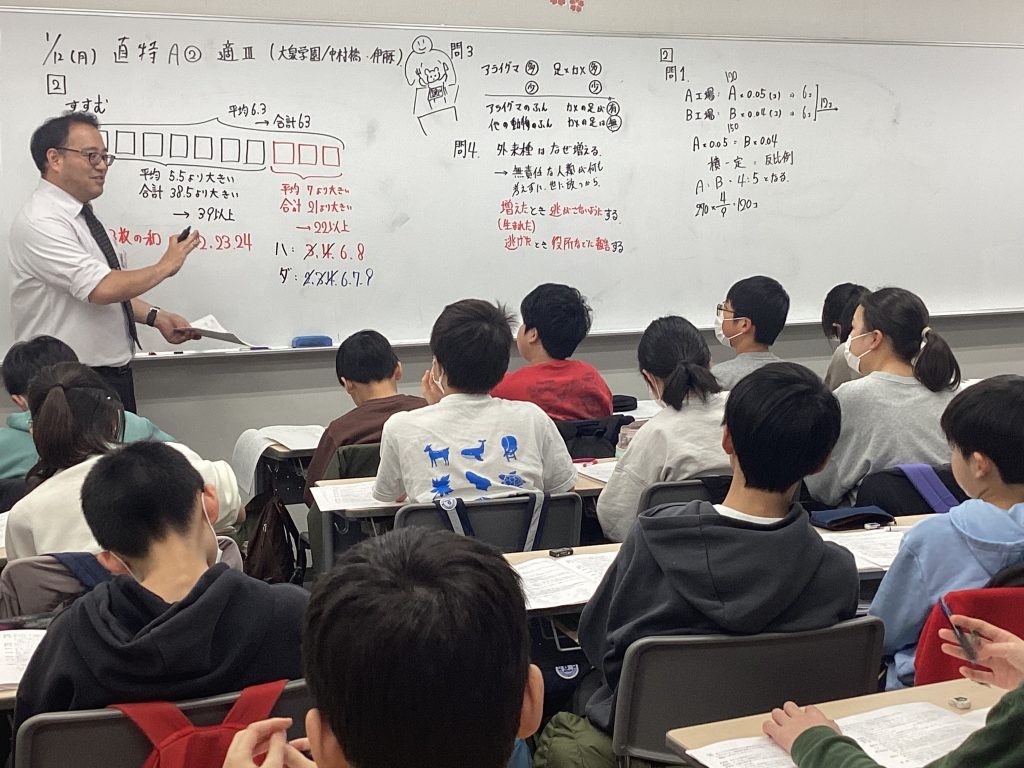 1/12(月) 直特A② 適Ⅲ (大皇学園/中村橋・伊藤)
2
すすむ
平均6.3
→合計63
平均 5.5より大きい
合計 38.5より大きい
→ 39以上
平均 7より大きい
合計 21より大きい
→22以上
3枚の和 22.23.24
ハ: 3.4.6.8
ダ: 2.3.4.6.7.9
問3
アライグマ 多 足×カメ 多
少 少
アライグマのふん カメの足は有
他の動物のふん カメの足は無
問4. 外来種はなぜ増える。
→ 無責任な人類が何も
考えずに、世に放つから。
増えたとき 逃がさないようにする
(生まれた)
逃げたとき 役所などに報告する
2
問1.
120
A工場: A×0.05(g) → 6g
B工場: B×0.04(g) → 6g
12g→
150
A×0.05 = B×0.04
積一定 → 反比例
A:B = 4:5となる。
270×4/9=120g